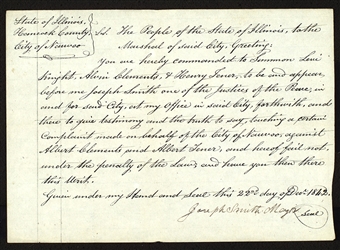 State of Illinois,
Hancock County, } Sct. The People of the State of Illinois, to the
City of Nauvoo Marshal of said City, Greeting.
You are hereby commanded to Summon Levi
Knight, Alvin Clements, & Henry Tener, to be and appear
before me Joseph Smith one of the Justices of the Peace, in
and for said City, at my Office in said City, forthwith, and
there to give testimony and the truth to say, touching a certain
Complaint made on behalf of the City of Nauvoo, against
Albert Clements and Albert Tener, and hereof fail not,
under the penalty of the Law, and have you then there
this Writ.
Given under my Hand and Seal this 22nd day of Decr. 1842.
Joseph Smith Mayor
Seal